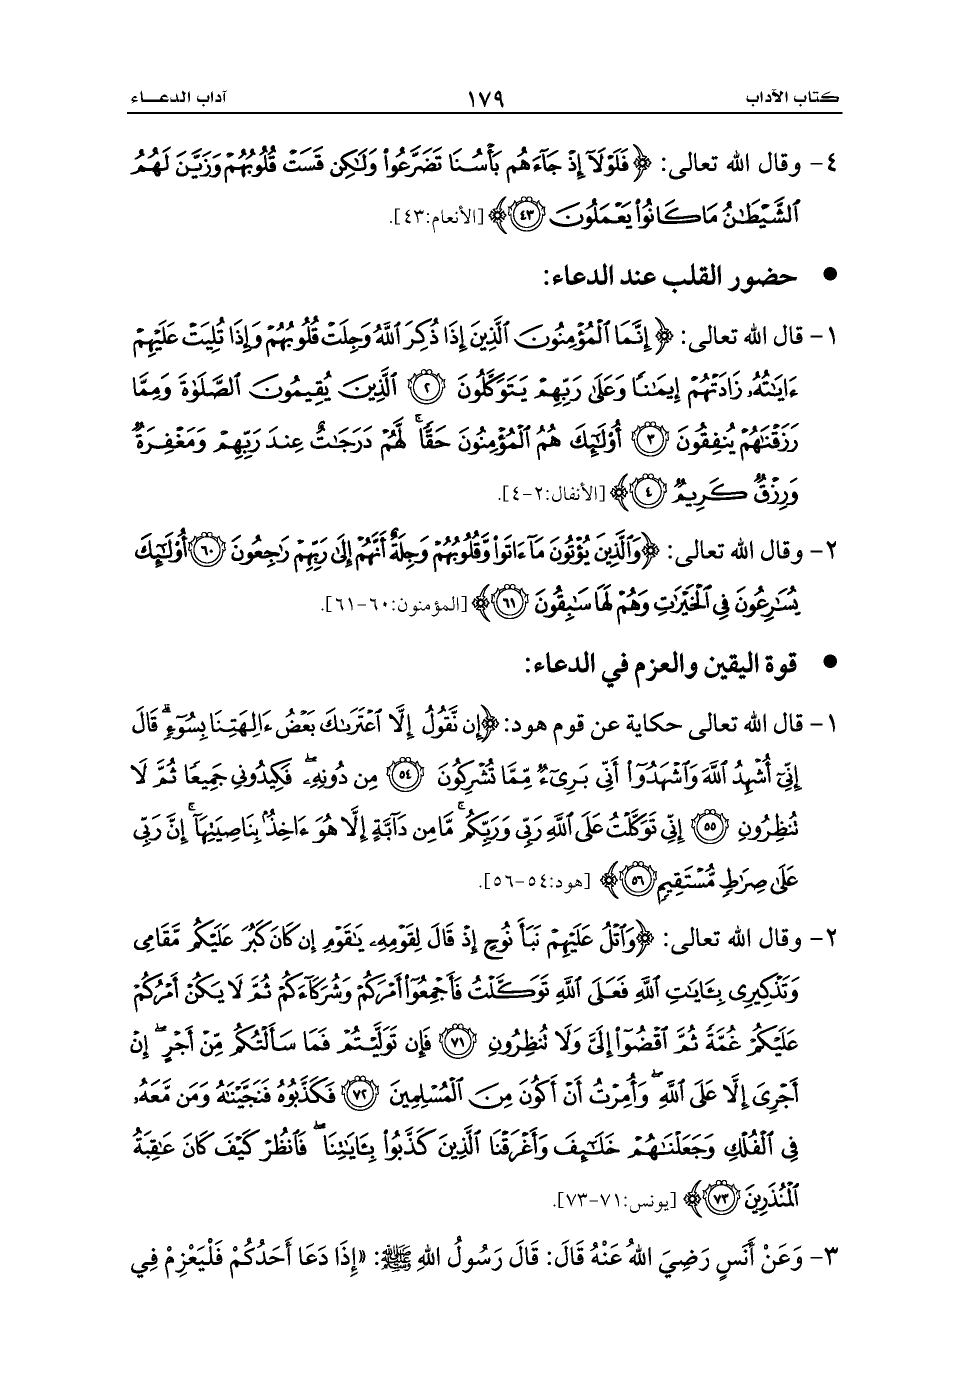 كتاب الآداب ١٧٩ آداب الدعـــاء
٤- وقال الله تعالى: ﴿فَلَوْلَآ إِذْ جَآءَهُم بَأْسُنَا تَضَرَّعُوا۟ وَلَٰكِن قَسَتْ قُلُوبُهُمْ وَزَيَّنَ لَهُمُ
ٱلشَّيْطَٰنُ مَا كَانُوا۟ يَعْمَلُونَ ٤٣﴾ [الأنعام:٤٣].
● حضور القلب عند الدعاء:
١- قال الله تعالى: ﴿إِنَّمَا ٱلْمُؤْمِنُونَ ٱلَّذِينَ إِذَا ذُكِرَ ٱللَّهُ وَجِلَتْ قُلُوبُهُمْ وَإِذَا تُلِيَتْ عَلَيْهِمْ
ءَايَٰتُهُۥ زَادَتْهُمْ إِيمَٰنًا وَعَلَىٰ رَبِّهِمْ يَتَوَكَّلُونَ ٢ ٱلَّذِينَ يُقِيمُونَ ٱلصَّلَوٰةَ وَمِمَّا
رَزَقْنَٰهُمْ يُنفِقُونَ ٣ أُو۟لَٰٓئِكَ هُمُ ٱلْمُؤْمِنُونَ حَقًّا ۚ لَّهُمْ دَرَجَٰتٌ عِندَ رَبِّهِمْ وَمَغْفِرَةٌ
وَرِزْقٌ كَرِيمٌ ٤﴾ [الأنفال:٢-٤].
٢- وقال الله تعالى: ﴿وَٱلَّذِينَ يُؤْتُونَ مَآ ءَاتَوا۟ وَّقُلُوبُهُمْ وَجِلَةٌ أَنَّهُمْ إِلَىٰ رَبِّهِمْ رَٰجِعُونَ ٦٠ أُو۟لَٰٓئِكَ
يُسَٰرِعُونَ فِى ٱلْخَيْرَٰتِ وَهُمْ لَهَا سَٰبِقُونَ ٦١﴾ [المؤمنون:٦٠-٦١].
● قوة اليقين والعزم في الدعاء:
١- قال الله تعالى حكاية عن قوم هود: ﴿إِن نَّقُولُ إِلَّا ٱعْتَرَىٰكَ بَعْضُ ءَالِهَتِنَا بِسُوٓءٍ ۗ قَالَ
إِنِّىٓ أُشْهِدُ ٱللَّهَ وَٱشْهَدُوٓا۟ أَنِّى بَرِىٓءٌ مِّمَّا تُشْرِكُونَ ٥٤ مِن دُونِهِۦ ۖ فَكِيدُونِى جَمِيعًا ثُمَّ لَا
تُنظِرُونِ ٥٥ إِنِّى تَوَكَّلْتُ عَلَى ٱللَّهِ رَبِّى وَرَبِّكُم ۚ مَّا مِن دَآبَّةٍ إِلَّا هُوَ ءَاخِذٌۢ بِنَاصِيَتِهَآ ۚ إِنَّ رَبِّى
عَلَىٰ صِرَٰطٍ مُّسْتَقِيمٍ ٥٦﴾ [هود:٥٤-٥٦].
٢- وقال الله تعالى: ﴿وَٱتْلُ عَلَيْهِمْ نَبَأَ نُوحٍ إِذْ قَالَ لِقَوْمِهِۦ يَٰقَوْمِ إِن كَانَ كَبُرَ عَلَيْكُم مَّقَامِى
وَتَذْكِيرِى بِـَٔايَٰتِ ٱللَّهِ فَعَلَى ٱللَّهِ تَوَكَّلْتُ فَأَجْمِعُوٓا۟ أَمْرَكُمْ وَشُرَكَآءَكُمْ ثُمَّ لَا يَكُنْ أَمْرُكُمْ
عَلَيْكُمْ غُمَّةً ثُمَّ ٱقْضُوٓا۟ إِلَىَّ وَلَا تُنظِرُونِ ٧١ فَإِن تَوَلَّيْتُمْ فَمَا سَأَلْتُكُم مِّنْ أَجْرٍ ۖ إِنْ
أَجْرِىَ إِلَّا عَلَى ٱللَّهِ ۖ وَأُمِرْتُ أَنْ أَكُونَ مِنَ ٱلْمُسْلِمِينَ ٧٢ فَكَذَّبُوهُ فَنَجَّيْنَٰهُ وَمَن مَّعَهُۥ
فِى ٱلْفُلْكِ وَجَعَلْنَٰهُمْ خَلَٰٓئِفَ وَأَغْرَقْنَا ٱلَّذِينَ كَذَّبُوا۟ بِـَٔايَٰتِنَا ۖ فَٱنظُرْ كَيْفَ كَانَ عَٰقِبَةُ
ٱلْمُنذَرِينَ ٧٣﴾ [يونس:٧١-٧٣].
٣- وَعَنْ أَنَسٍ رَضِيَ اللهُ عَنْهُ قَالَ: قَالَ رَسُولُ اللهِ ﷺ: «إِذَا دَعَا أَحَدُكُمْ فَلْيَعْزِمْ فِي